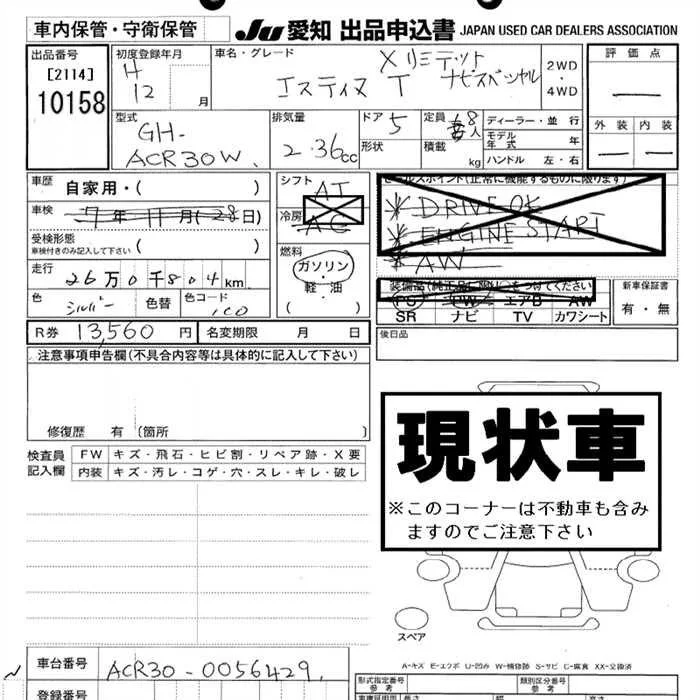 車内保管・守衛保管
JU 愛知 出品申込書 JAPAN USED CAR DEALERS ASSOCIATION
出品番号
[2114]
10158
初度登録年月
H
12 月
車名・グレード
Xリミテット
エスティマ T ナビスペシャル
2WD
・
4WD
評価点
外装 内装
型式
GH-
ACR30W
排気量
2.36cc
ドア
5
形状
定員 8人
積載 kg
ディーラー・並行
モデル年式 年
ハンドル 左・右
車歴 自家用・( )
車検 7年11月(28日)
受検形態
車検付きのみ記入して下さい ( )
走行 26万0千804km
色 シルバー 色替 色コード 1C0
R券 13,560円 名変期限 月 日
シフト AT
冷房 AC
燃料
ガソリン
・
軽・油
( )
セールスポイント(正常に機能するものに限ります)
DRIVE OK
ENGINE START
AW
装備品(純正品に限り)○をつけてください
PS PW エアB AW
SR ナビ TV カワシート
新車保証書
有・無
後日品
注意事項申告欄(不具合内容等は具体的に記入して下さい)
修復歴 有 (箇所 )
検査員
記入欄
FW キズ・飛石・ヒビ割・リペア跡・X要
内装 キズ・汚レ・コゲ・穴・スレ・キレ・破レ
現状車
※このコーナーは不動車も含み
ますのでご注意下さい
スペア
A-キズ E-エクボ U-凹み W-補修跡 S-サビ C-腐食 XX-交換済
車台番号 ACR30-0056429
登録番号
型式指定番号
参考
類別区分番号
参考
長さ 幅 高さ